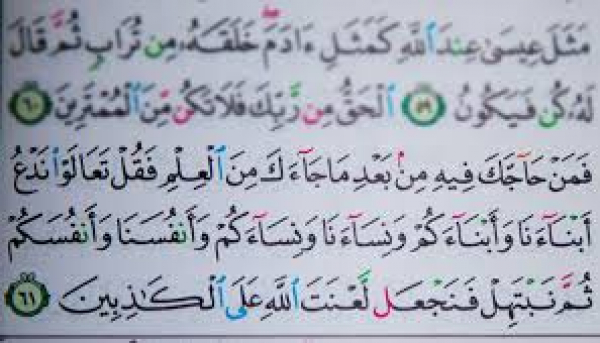 مَثَلَ عِيسَىٰ عِندَ ٱللَّهِ كَمَثَلِ ءَادَمَۖ خَلَقَهُۥ مِن تُرَابٍ ثُمَّ قَالَ
لَهُۥ كُن فَيَكُونُ ٥٩ ٱلْحَقُّ مِن رَّبِّكَ فَلَا تَكُن مِّنَ ٱلْمُمْتَرِينَ ٦٠
فَمَنْ حَآجَّكَ فِيهِ مِنۢ بَعْدِ مَا جَآءَكَ مِنَ ٱلْعِلْمِ فَقُلْ تَعَالَوْا۟ نَدْعُ
أَبْنَآءَنَا وَأَبْنَآءَكُمْ وَنِسَآءَنَا وَنِسَآءَكُمْ وَأَنفُسَنَا وَأَنفُسَكُمْ
ثُمَّ نَبْتَهِلْ فَنَجْعَل لَّعْنَتَ ٱللَّهِ عَلَى ٱلْكَٰذِبِينَ ٦١